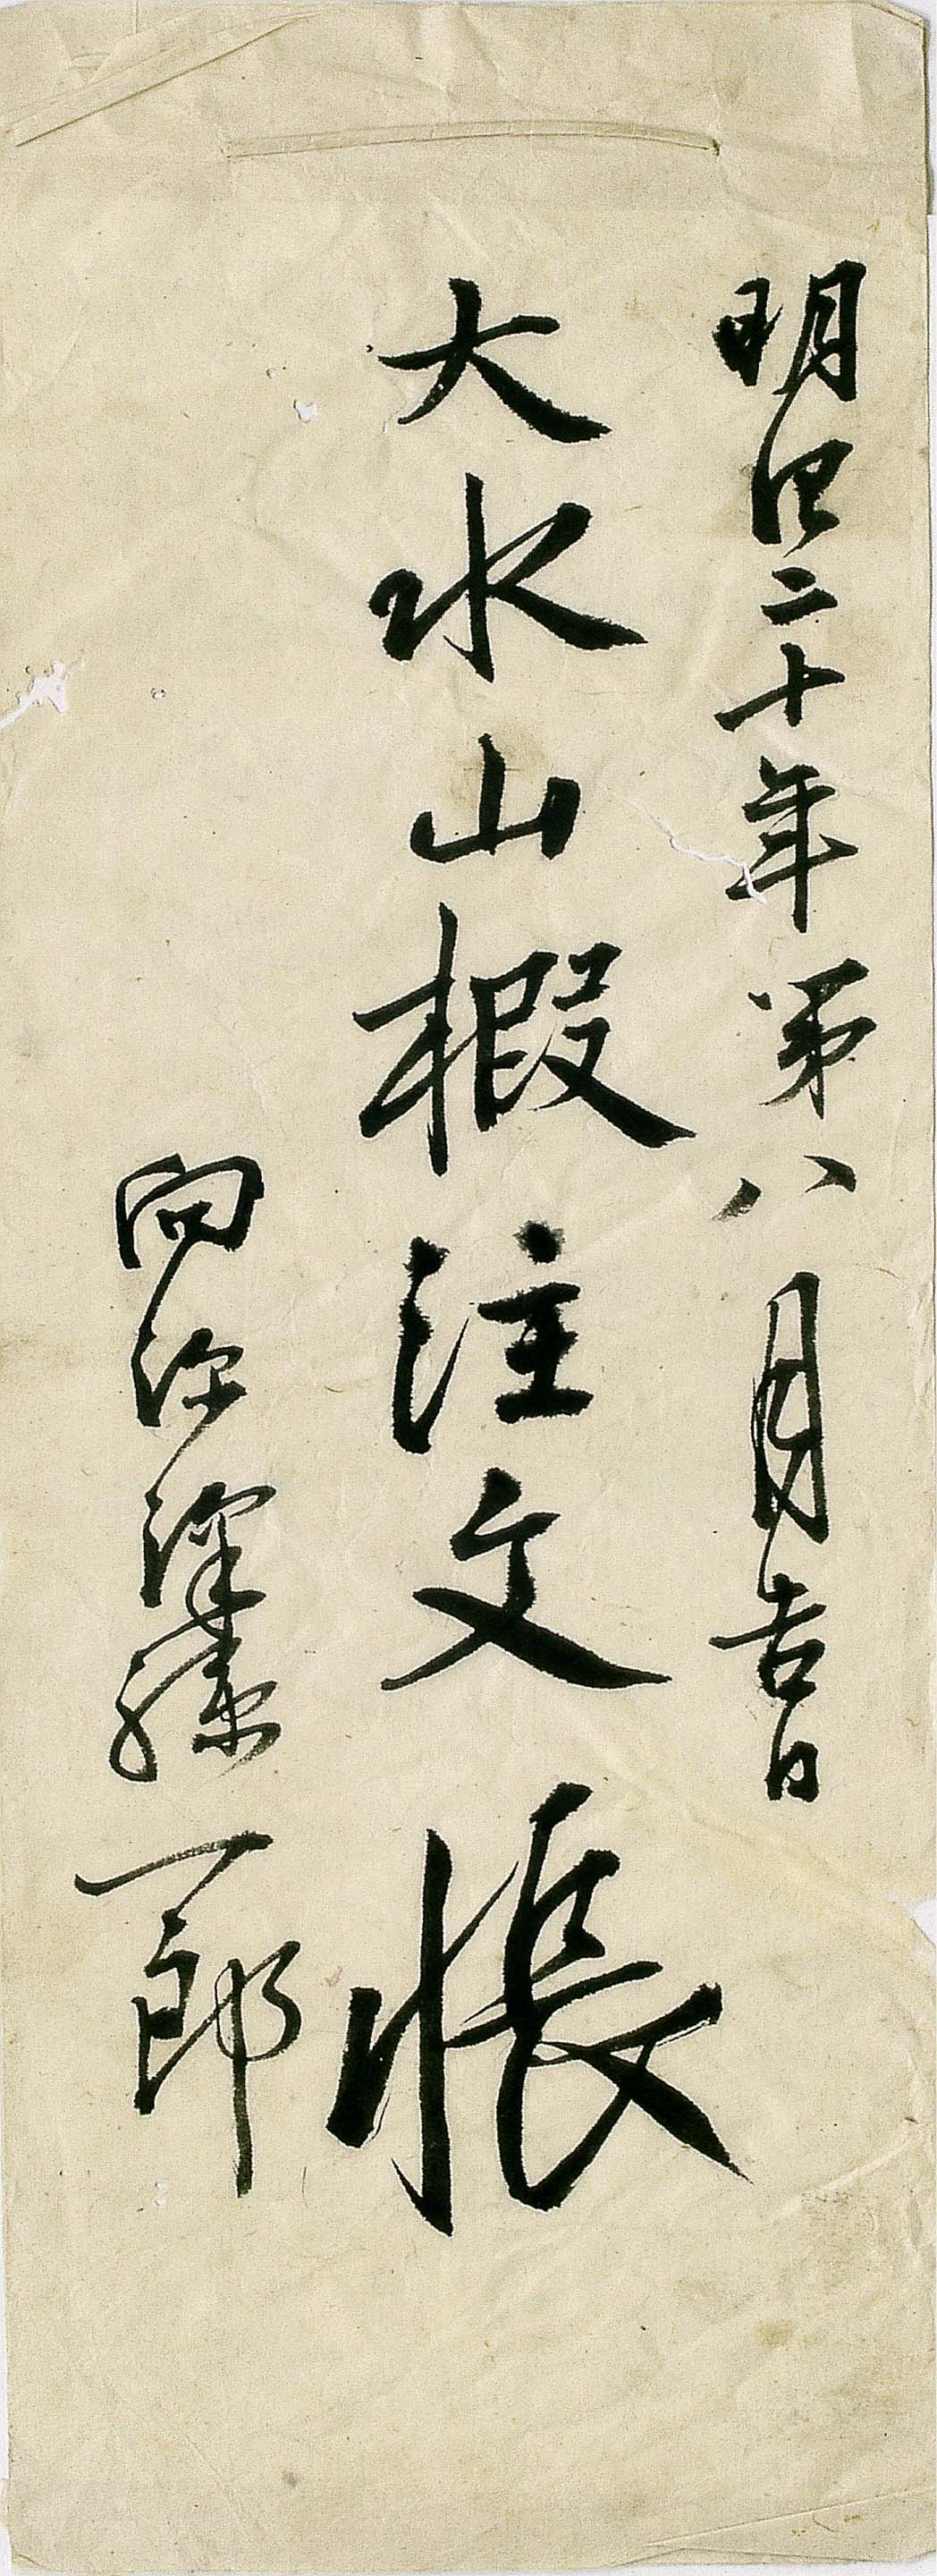 明治二十年第八月吉日
大水山椵注文帳
向深澤一郎